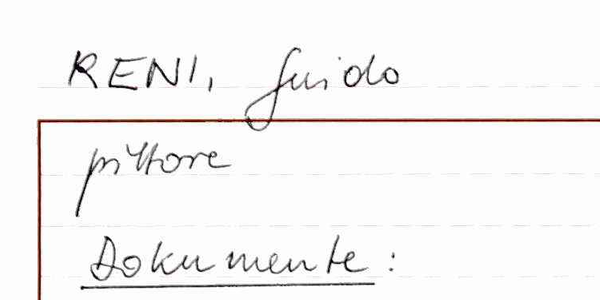 RENI, Guido
pittore
Dokumente: